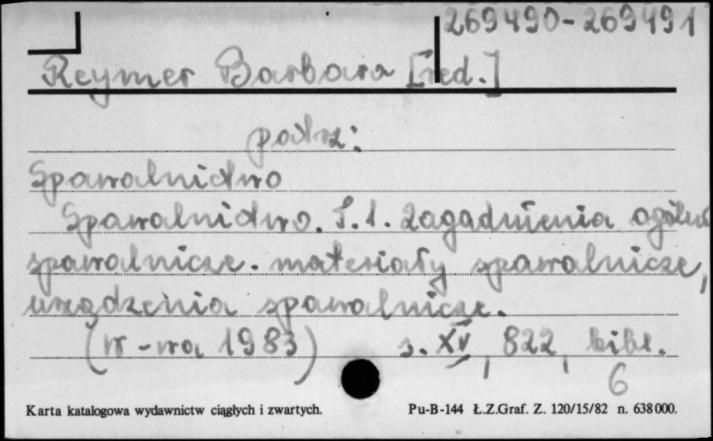 269490-269491
Reymer Barbara [red.]
patrz:
Spawalnictwo
Spawalnictwo. T.1. Zagadnienia ogólne
spawalnicze. materiały spawalnicze,
urządzenia spawalnicze.
(W-wa 1983) s. XV, 822, bibl.
6
Karta katalogowa wydawnictw ciągłych i zwartych. Pu-B-144 Ł.Z.Graf. Z. 120/15/82 n. 638000.